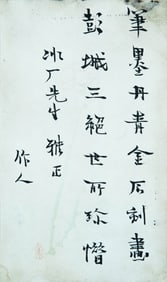 笔墨丹青金石刻画
彭城三绝世所珍惜
冰厂先生雅正
作人